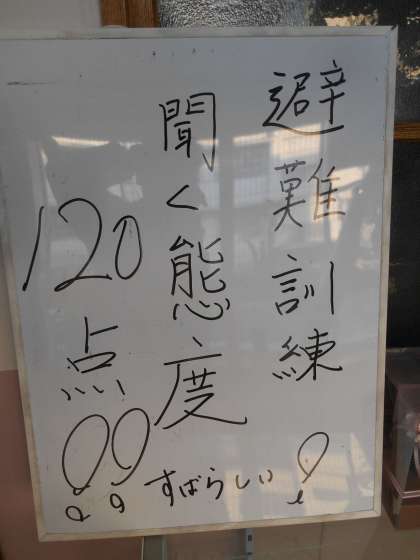 避難訓練
聞く態度
120点!!
すばらしい!